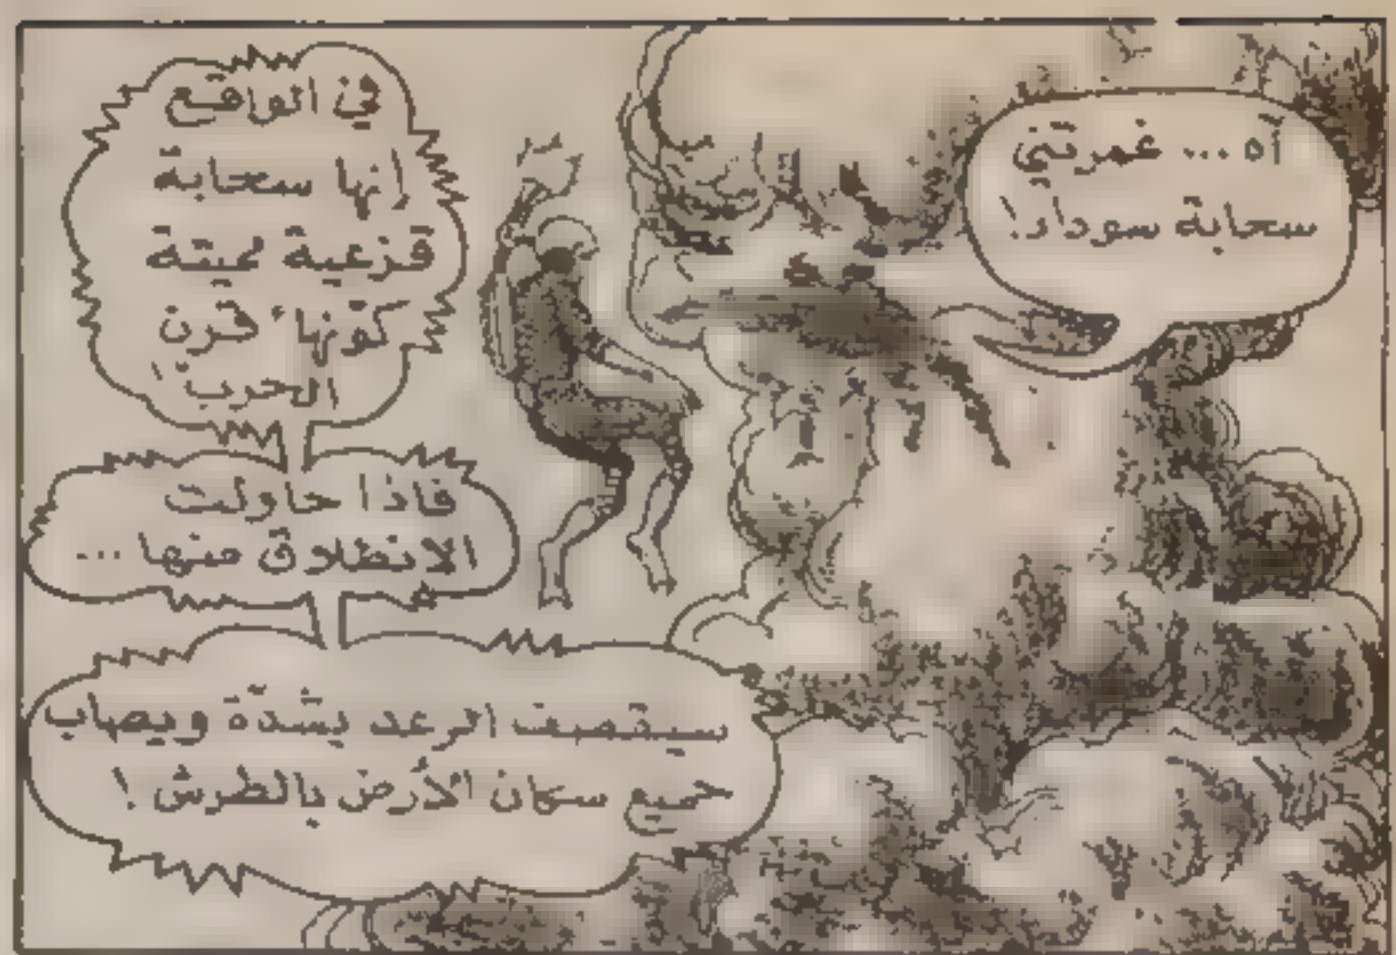 آه ... غمرتني
سحابة سوداء!
في الواقع
إنها سحابة
قزعية مميتة
كوّنها قرن
الحرب!
فإذا حاولت
الانطلاق منها ...
سيقصف الرعد بشدّة ويصاب
جميع سكان الأرض بالطرش!